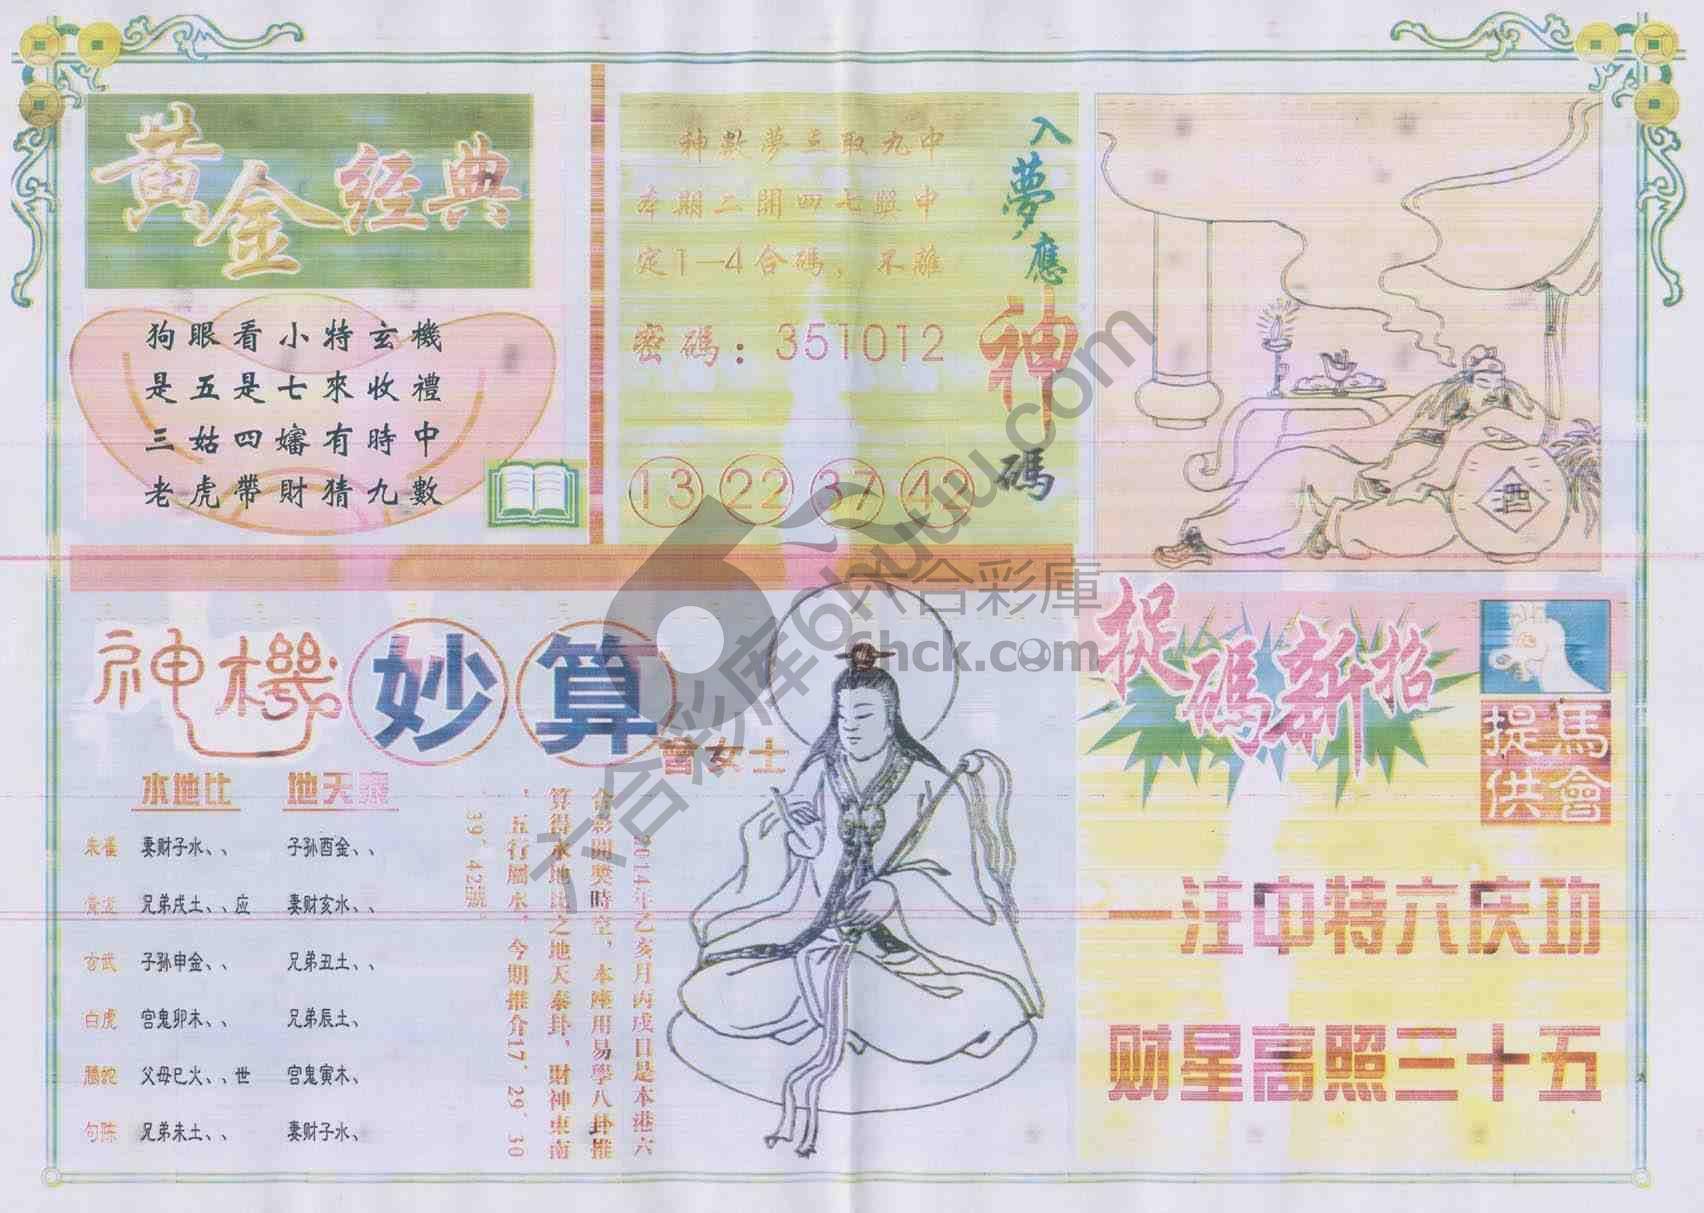 黄金经典
狗眼看小特玄機
是五是七來收禮
三姑四嬸有時中
老虎帶財猜九數
入夢應神碼
神數夢三取九中
本期二開四七與中
定1—4合碼，不離
密碼：351012
13 22 37 42
酒
神機妙算
曾女士
水地比 地天泰
朱雀 妻财子水、、 子孙酉金、、
兄弟戌土、、应 妻财亥水、、
玄武 子孙申金、、 兄弟丑土、、
白虎 官鬼卯木、、 兄弟辰土、
螣蛇 父母巳火、、世 官鬼寅木、
勾陈 兄弟未土、、 妻财子水、
2014年乙亥月丙戌日是本港六
合彩開獎時空，本座用易學八卦推
算得水地比之地天泰卦，財神東南
，五行屬水，今期推介17、29、30
、39、42號。
捉碼新招
馬會
提供
一注中特六庆功
财星高照三十五
六合彩庫6huuu.com
六合彩庫
6hck.com